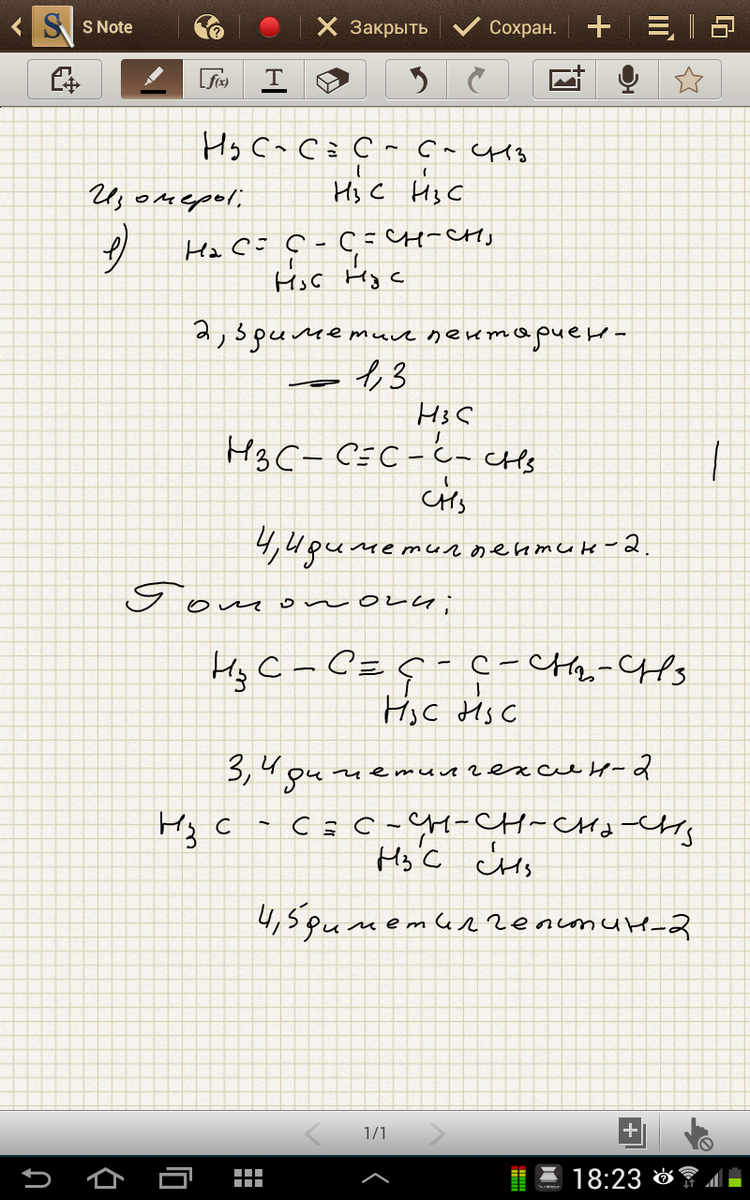 S Note
Закрыть
Сохран.
f(x)
T
H3C - C ≡ C - C - CH3
H3C H3C
Изомеры:
1) H2C = C - C = CH - CH3
H3C H3C
2,3диметилпентадиен-
— 1,3
H3C
H3C - C ≡ C - C - CH3
CH3
4,4диметилпентин-2.
Гомологи:
H3C - C ≡ C - C - CH2 - CH3
H3C H3C
3,4диметилгексин-2
H3C - C ≡ C - CH - CH - CH2 - CH3
H3C CH3
4,5диметилгептин-2
1/1
18:23